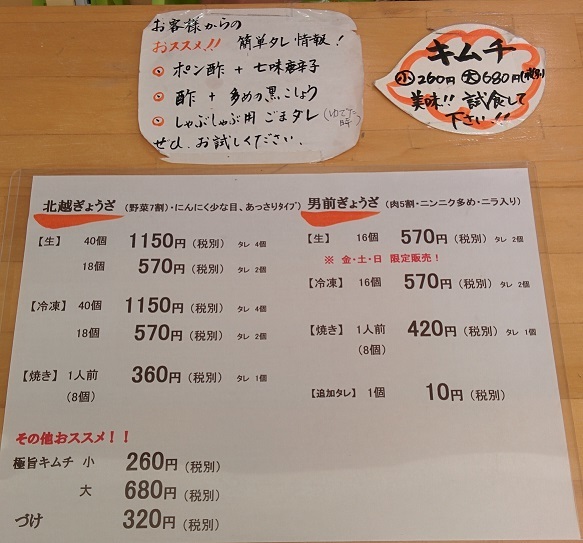 お客様からの
おススメ!! 簡単タレ情報!
ポン酢 + 七味唐辛子
酢 + 多めの黒こしょう
しゃぶしゃぶ用 ごまタレ (ゆでた時)
ぜひ、お試しください。
キムチ
小 260円 大 680円 (税別)
美味!! 試食して
下さい!!
北越ぎょうざ (野菜7割)・にんにく少な目、あっさりタイプ)
【生】 40個 1150円 (税別) タレ 4個
18個 570円 (税別) タレ 2個
【冷凍】 40個 1150円 (税別) タレ 4個
18個 570円 (税別) タレ 2個
【焼き】 1人前 360円 (税別) タレ 1個
(8個)
男前ぎょうざ (肉5割・ニンニク多め・ニラ入り)
【生】 16個 570円 (税別) タレ 2個
※ 金・土・日 限定販売!
【冷凍】 16個 570円 (税別) タレ 2個
【焼き】 1人前 420円 (税別) タレ 1個
(8個)
【追加タレ】 1個 10円 (税別)
その他おススメ!!
極旨キムチ 小 260円 (税別)
大 680円 (税別)
づけ 320円 (税別)